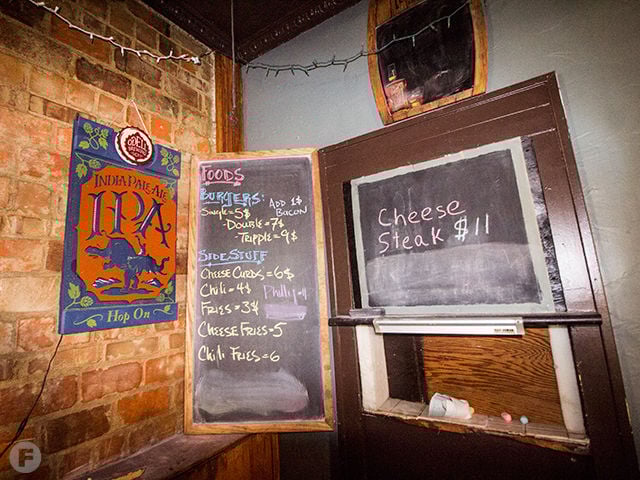 ODELL
BREWING CO
INDIA PALE ALE
IPA
HOP ON
FOODS
BURGERS:
ADD 1$
BACON
SINGLE = 5$
-DOUBLE = 7$
-TRIPPLE = 9$
SIDE STUFF
CHEESE CURDS = 6$
CHILI = 4$
FRIES = 3$
Philly -11
CHEESE FRIES = 5
CHILI FRIES = 6
Cheese
Steak $11
F